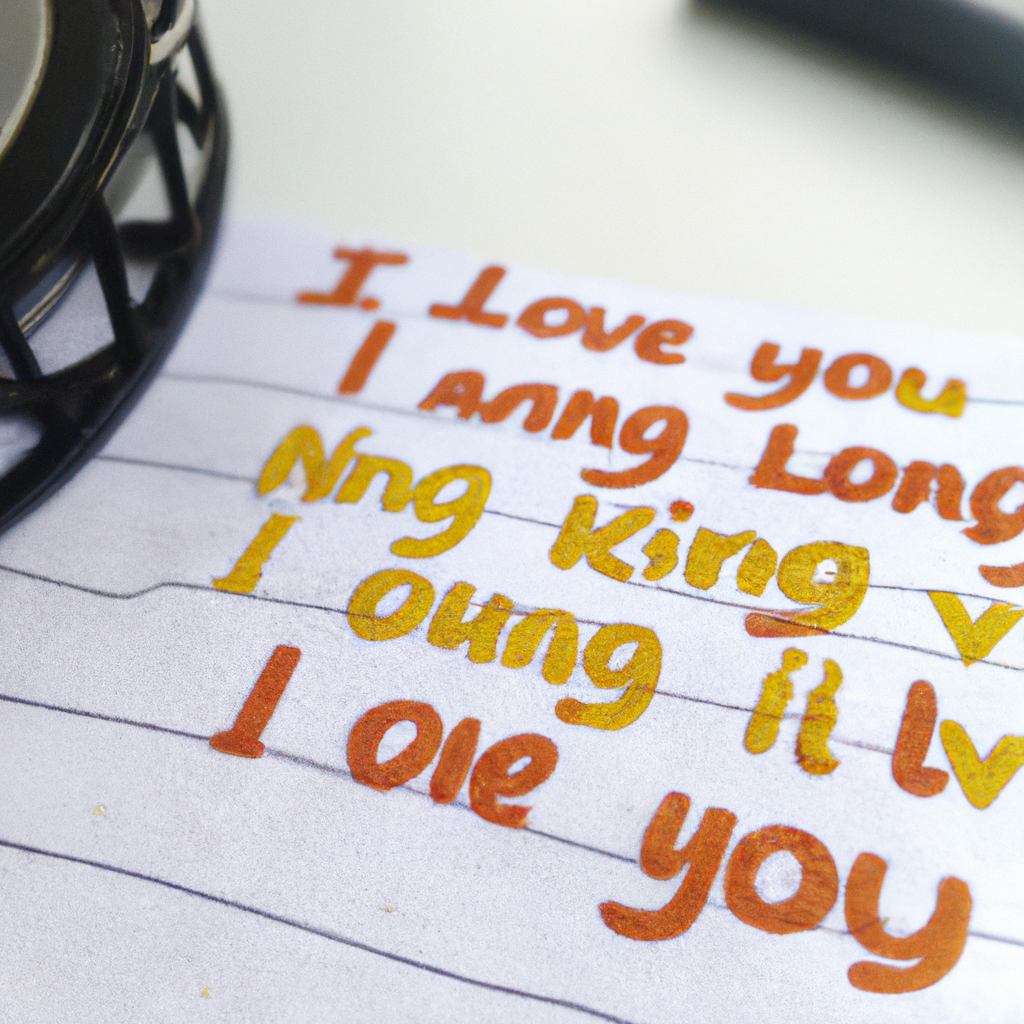 I. Love you
I Anng Long
Nng King v
I oung il Lv
I ole you